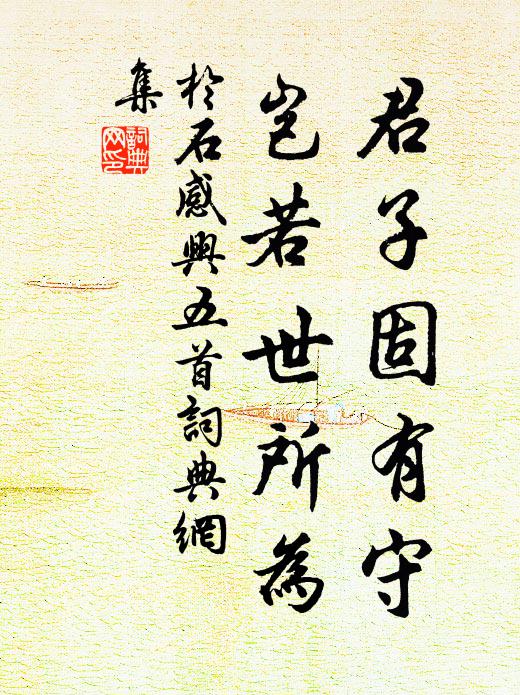 君子固有守
豈若世所為
於石感興五首詞典網
集
詞典
网印